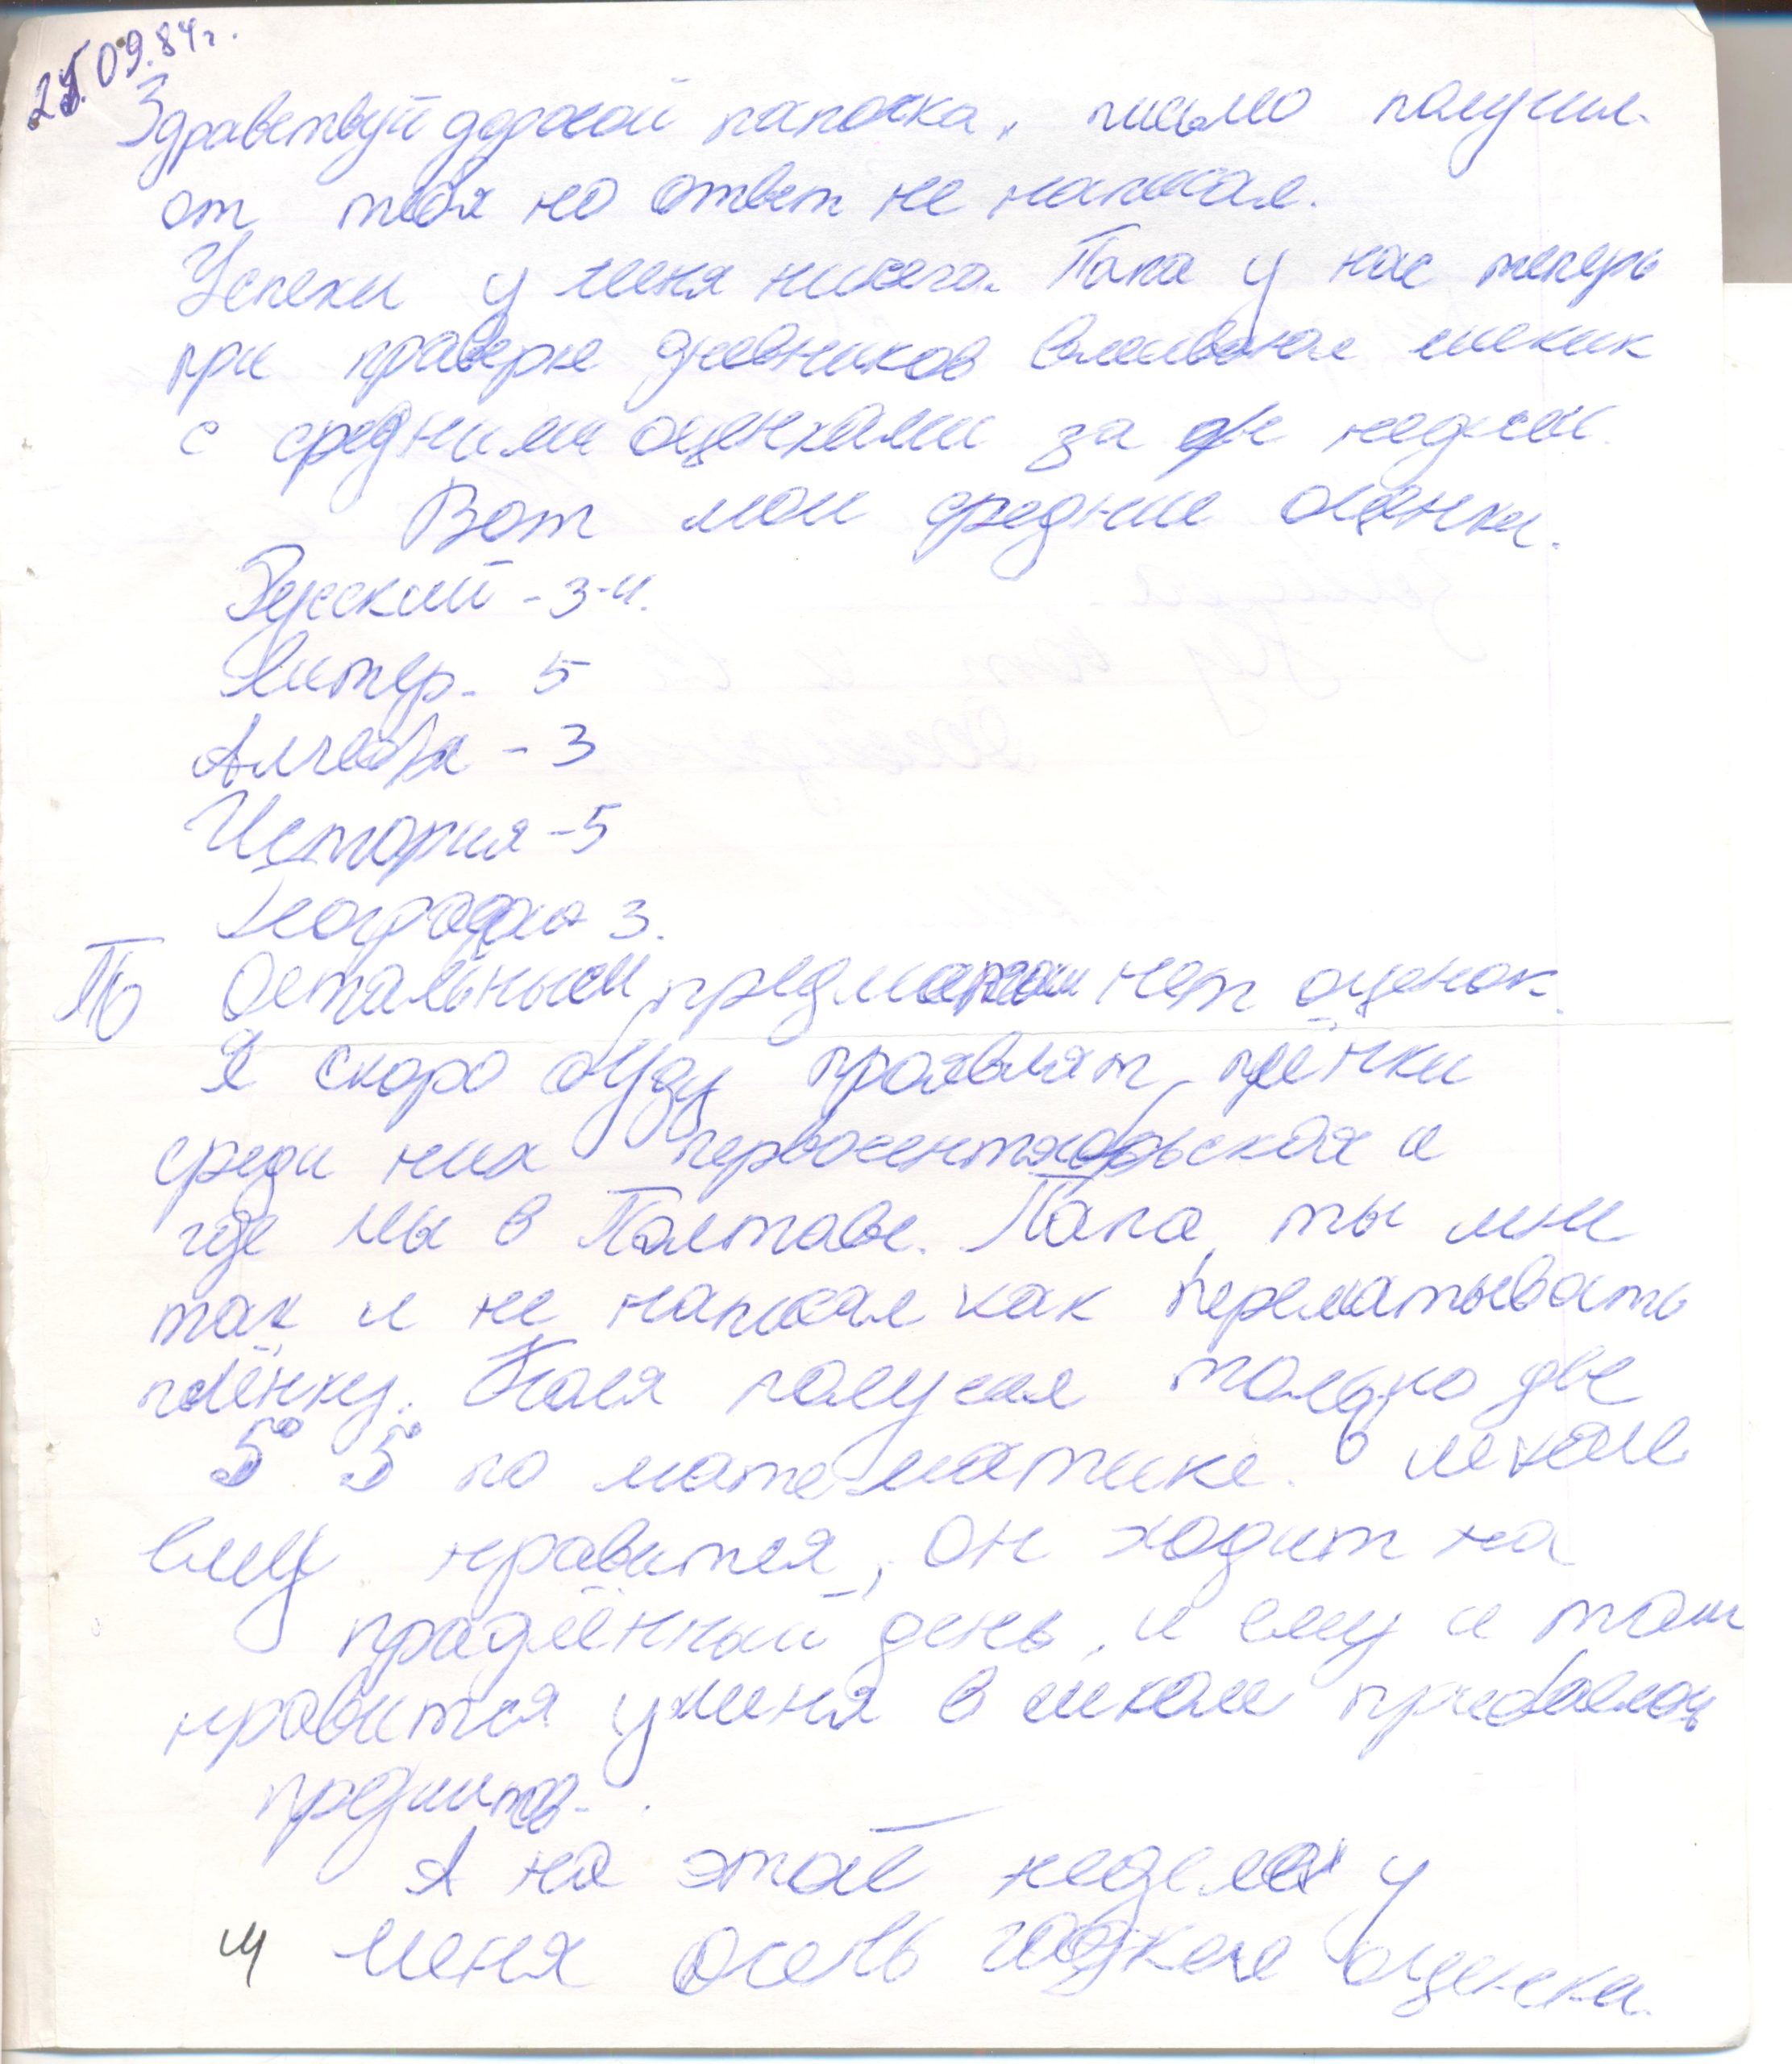 09.84г.
Здравствуй дорогой папочка, письмо получил
от тебя но ответ не написал.
Успехи у меня ничего. Папа у нас теперь
при праверке дневников
с средними оценками за недели.
Вот мои средние оценки.
Русский - 3-4.
Литер. - 5
Алгебра - 3
История - 5
География 3.
По Остальным предметам нет оценок.
Я скоро буду проявлят плёнки
среди них первосентябрьская и
где мы в Полтаве. Папа, ты мне
так и не написал как перематывать
плёнку. Коля получил только две
5° 5° по математике. В школе
ему нравится, он ходит на
продлённый день, и ему и там
нравится у меня в школе
предметов.
А на этой неделе у
меня очень гадкие оценки.